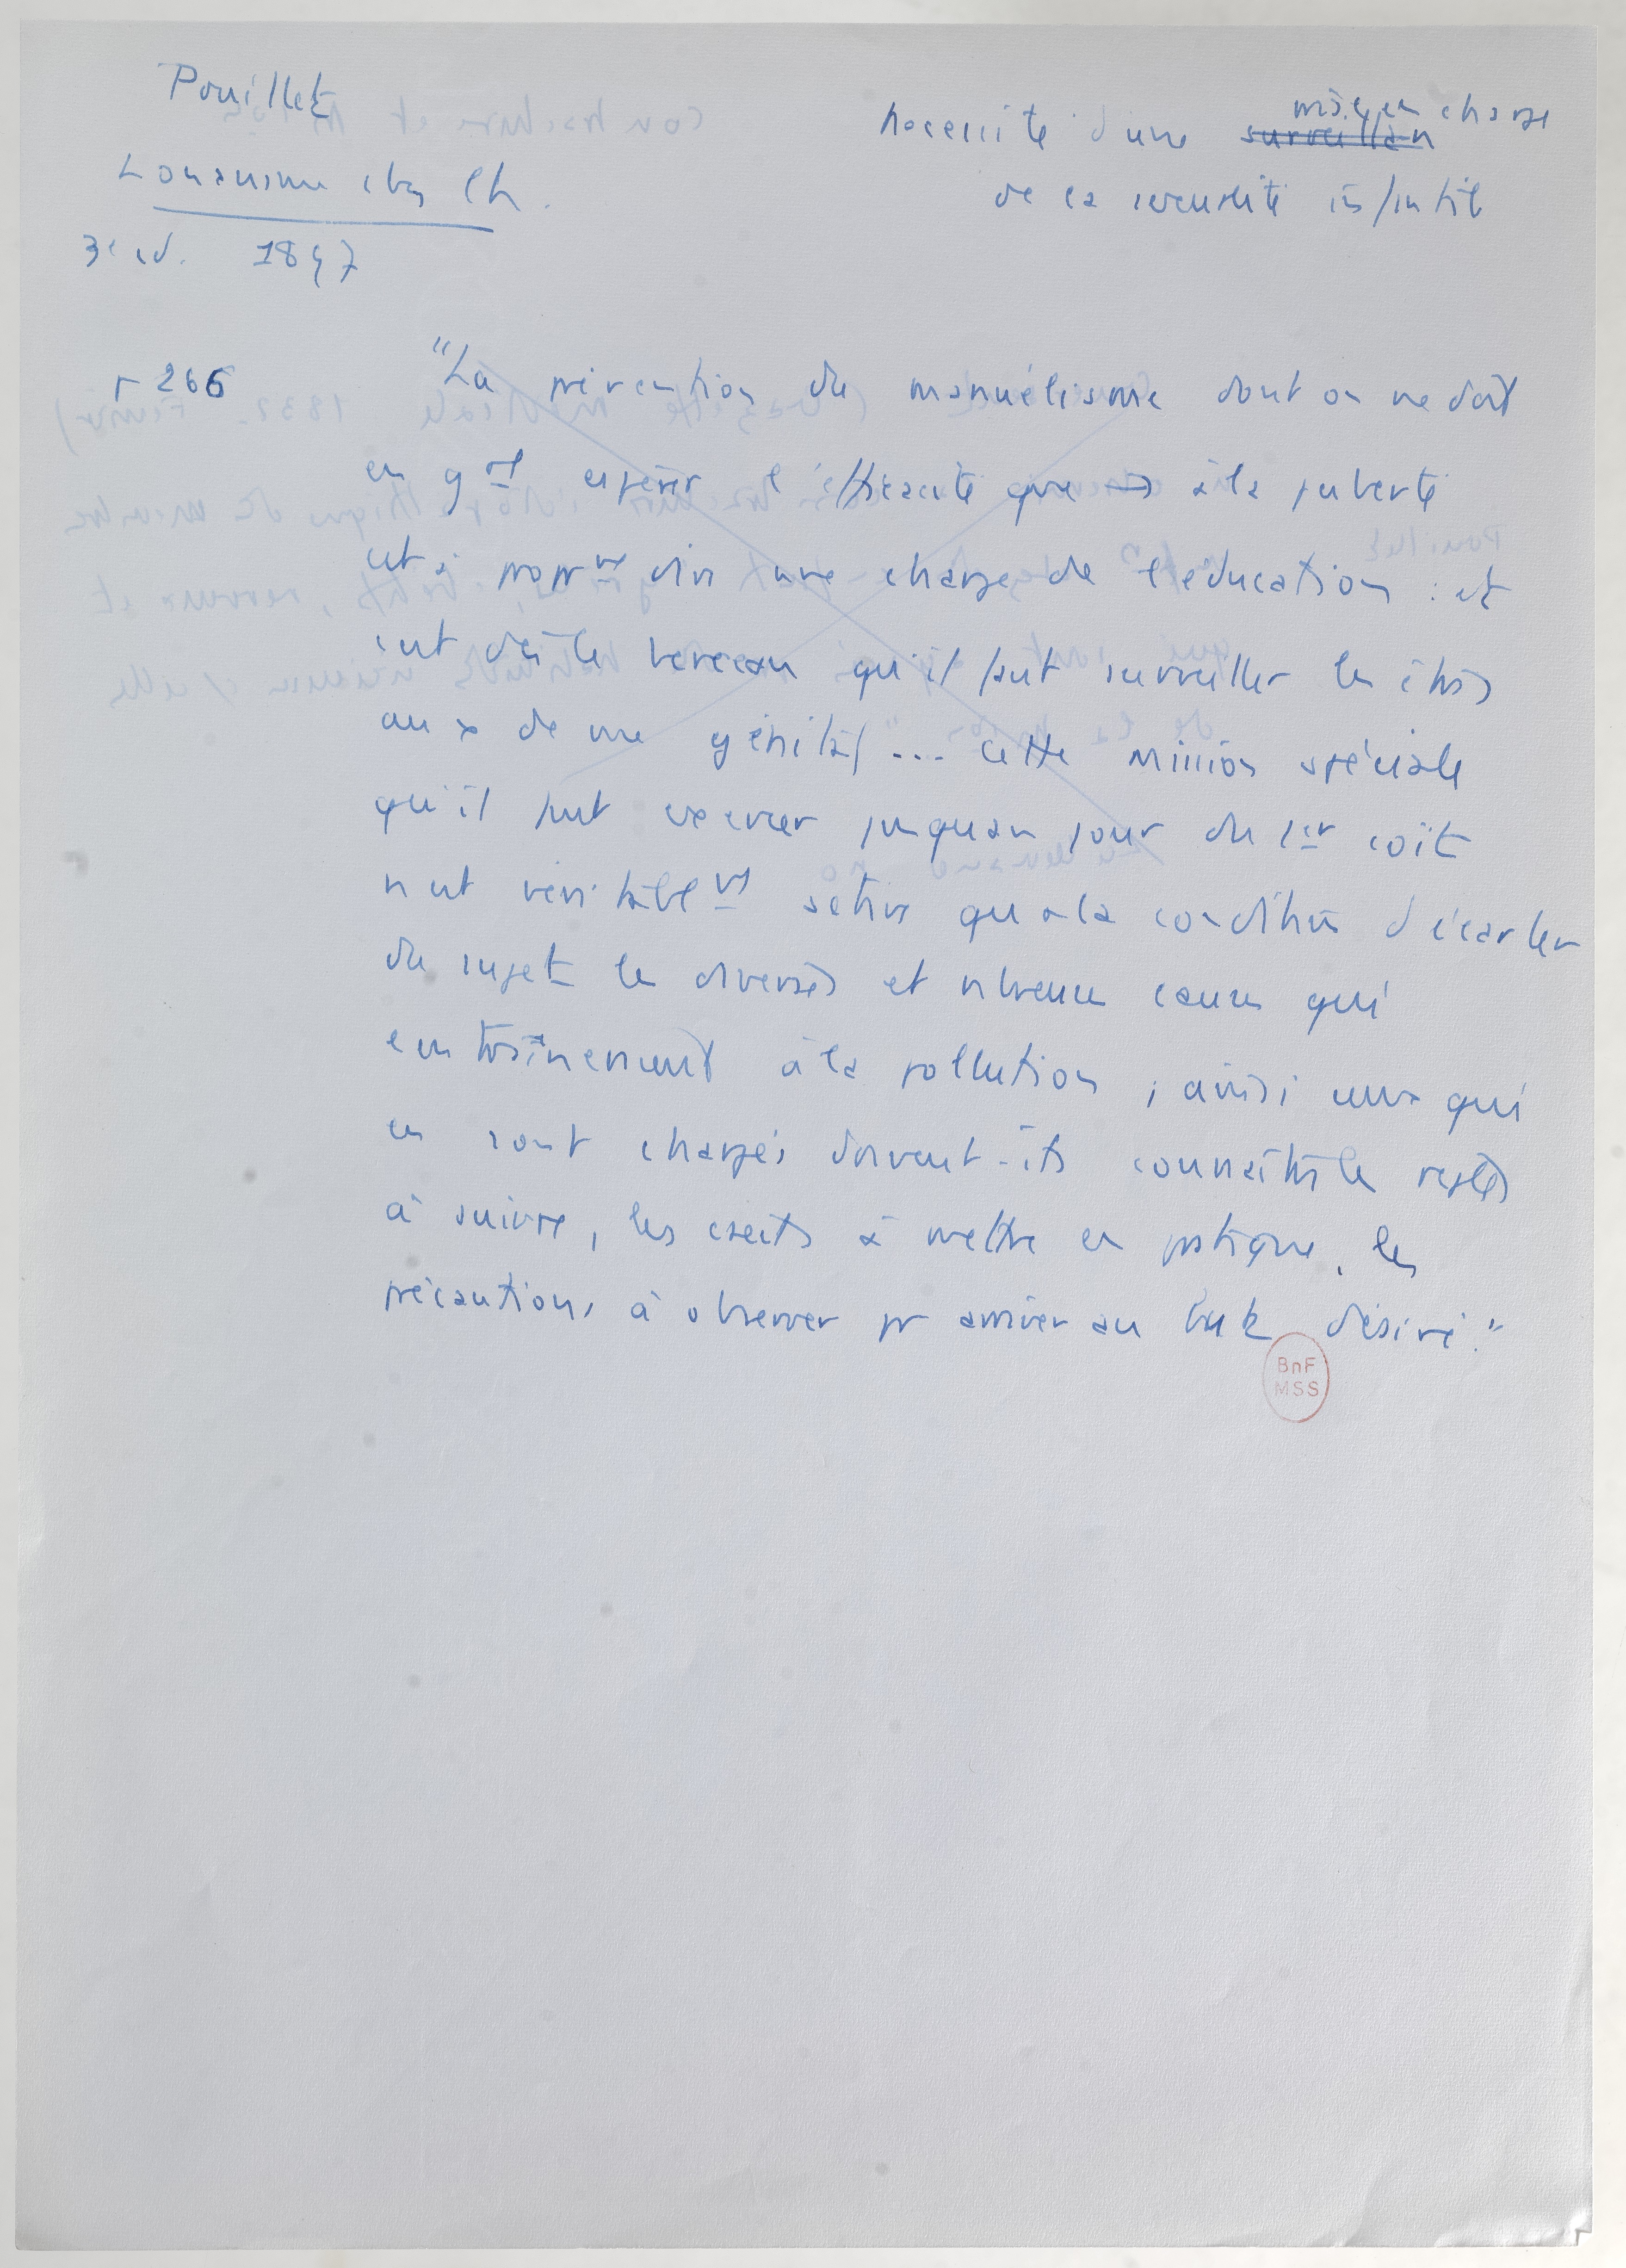 Pouillet
L'onanisme chez l'h.
3e éd. 1897
Nécessité d'une surveillan mise en charge
de la sexualité infantile
p 266
"La prévention du manuélisme dont on ne doit
en gal espérer l'efficacité que → à la puberté
est à proprt dire une charge de l'éducation : et
c'est dès le berceau qu'il faut surveiller les êtres
au x de vue génital ... Cette mission spéciale
qu'il faut exercer jusqu'au jour du 1er coït
n'est véritablt active qu'à la condition d'écarter
du sujet les diverses et nbreuses causes qui
entraîneraient à la pollution ; ainsi ceux qui
en sont chargés doivent-ils connaître les règles
à suivre, les à mettre en pratique, les
précautions à observer pr arriver au but désiré."
BnF
MSS